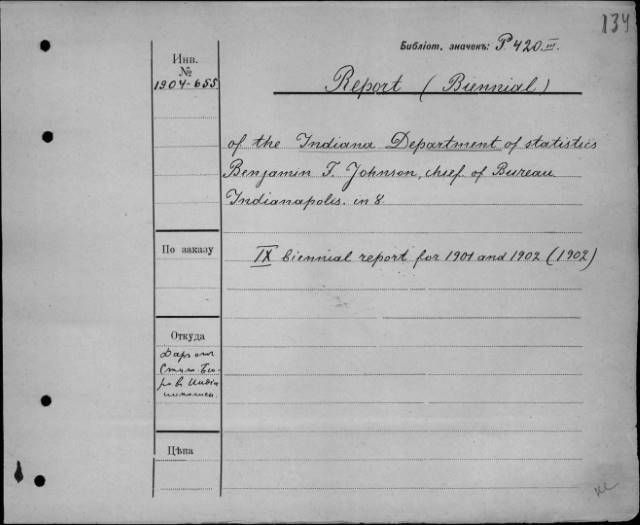 134
Библіот. значекъ: P 420 III.
Инв.
№
1904-655
Report (Biennial)
of the Indiana Department of statistics
Benjamin F. Johnson, chief of Bureau
Indianapolis. in 8.
По заказу
IX biennial report for 1901 and 1902 (1902)
Откуда
Даръ отъ
Стат. Бю-
ро в Инді
анаполисѣ
Цѣна